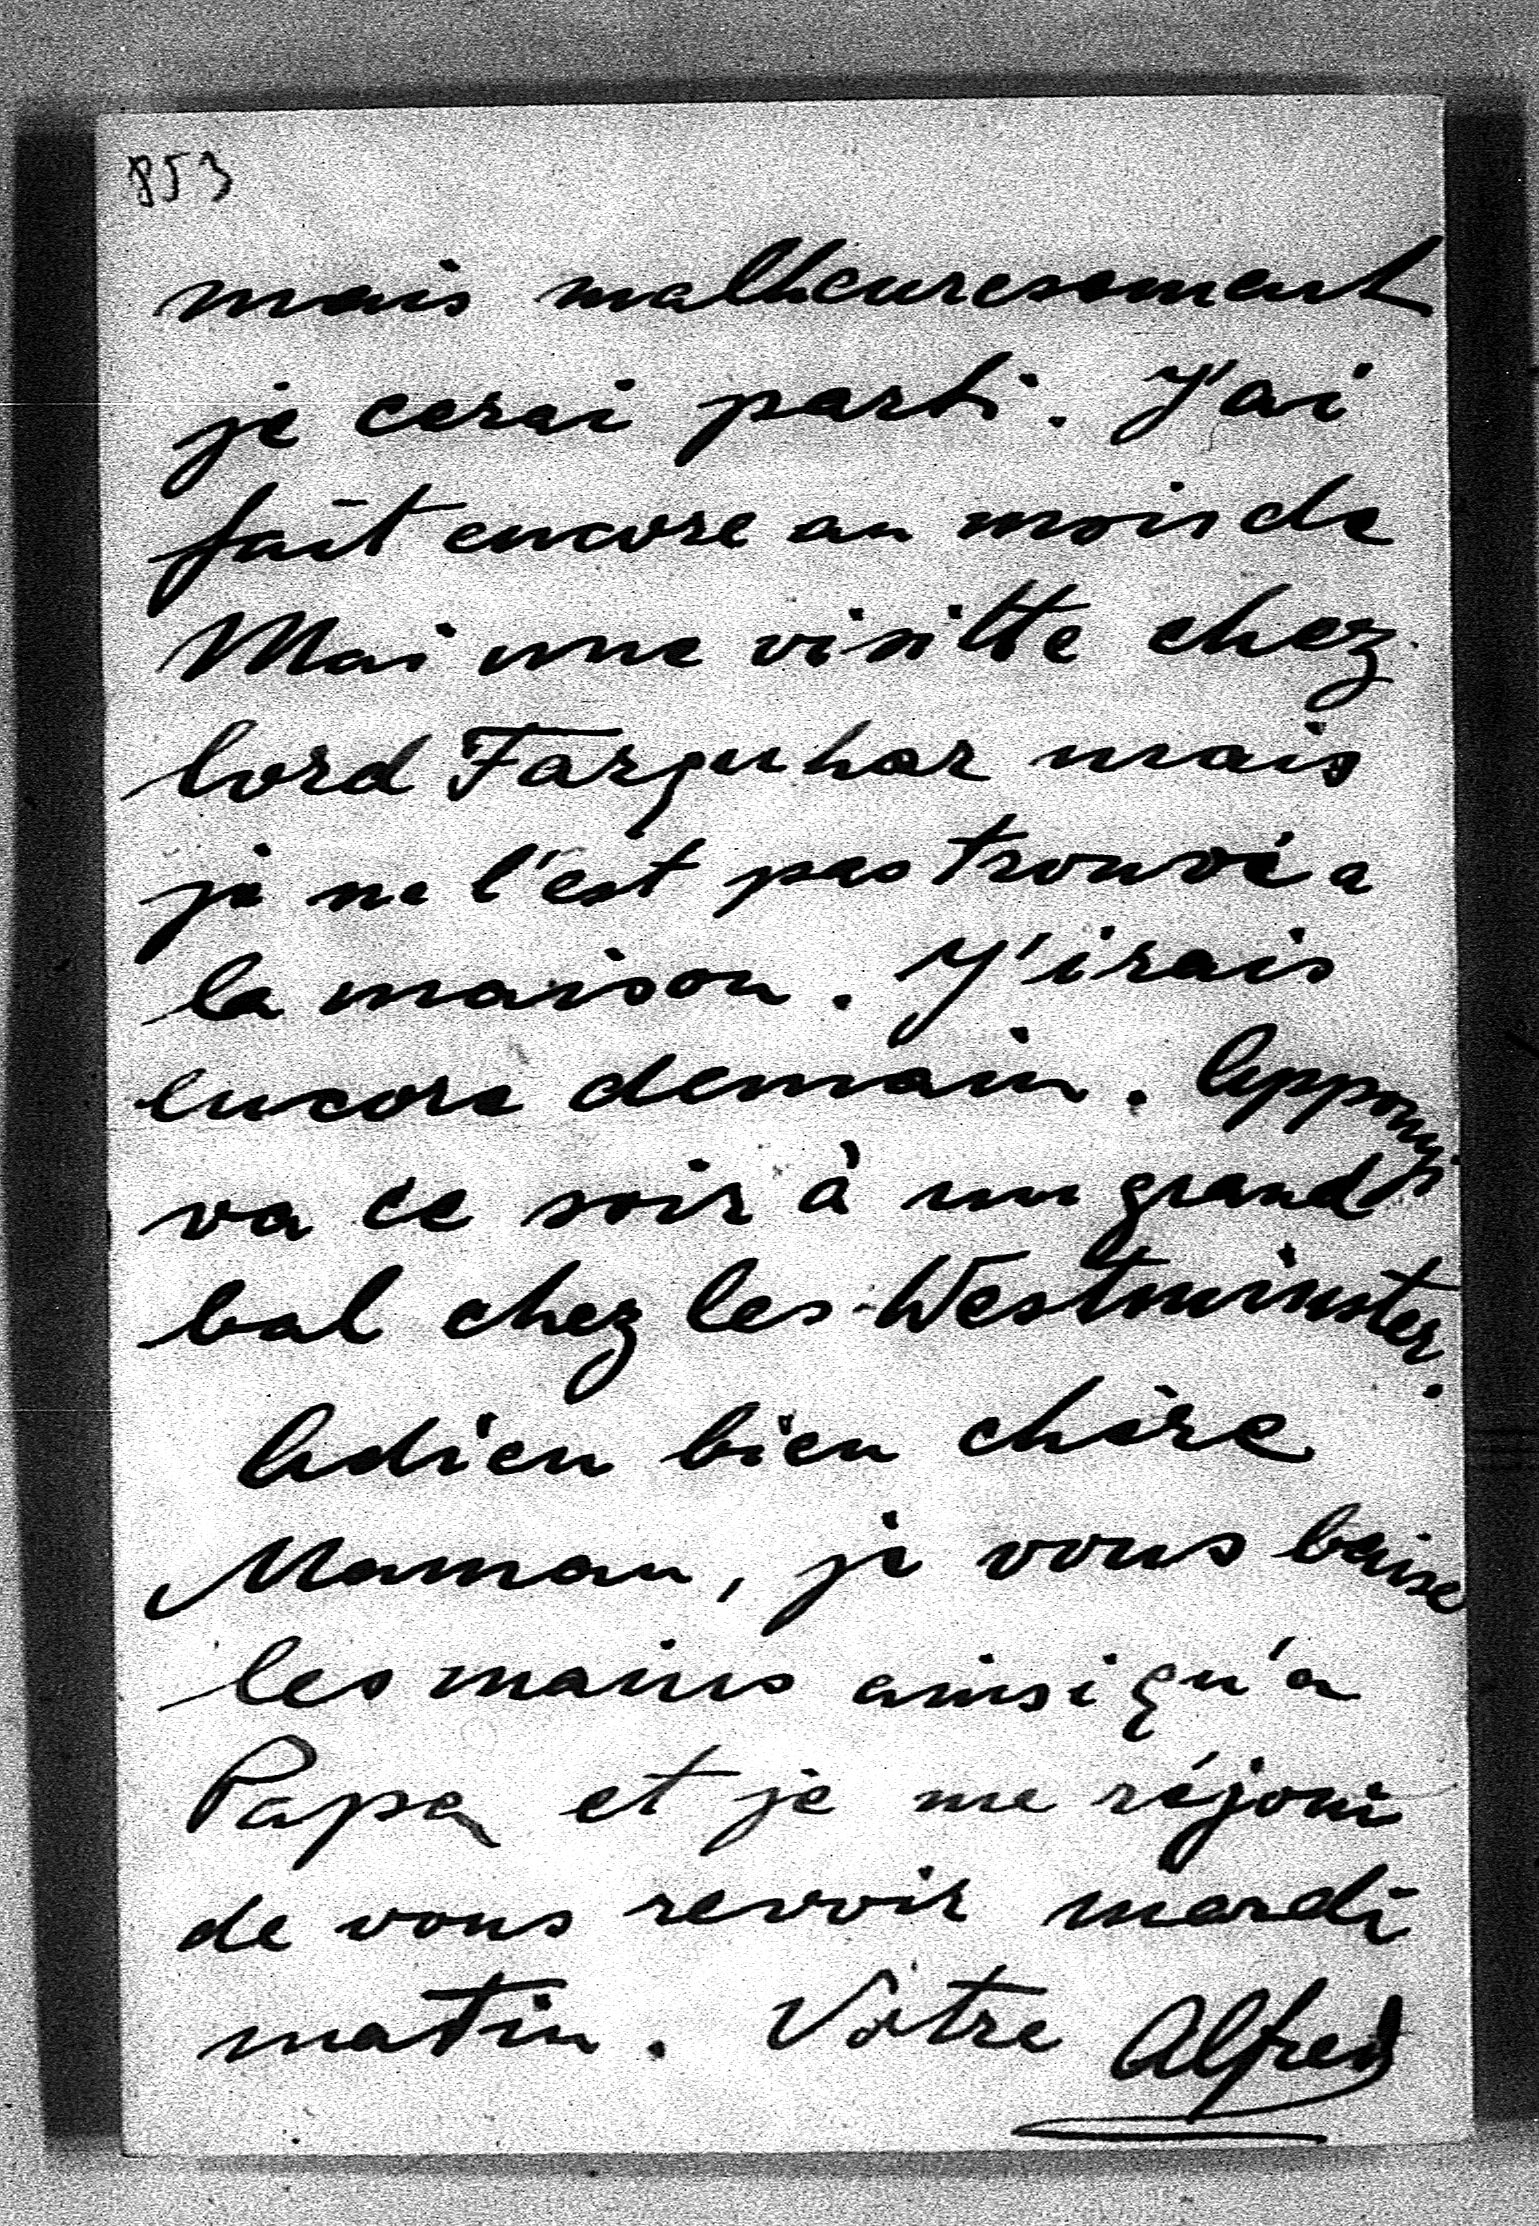 853
mais malheuresement
je cerai parti. J'ai
fait encore au mois de
Mai une visitte chez
lord Farquhar mais
je ne l'est pas trouvé a
la maison. J'irais
encore demain. Appony
va ce soir à un grand
bal chez les Westminster.
Adieu bien chère
Maman, je vous baise
les mains ainsi qu'a
Papa et je me réjoui
de vous revoir mardi
matin. Votre Alfred